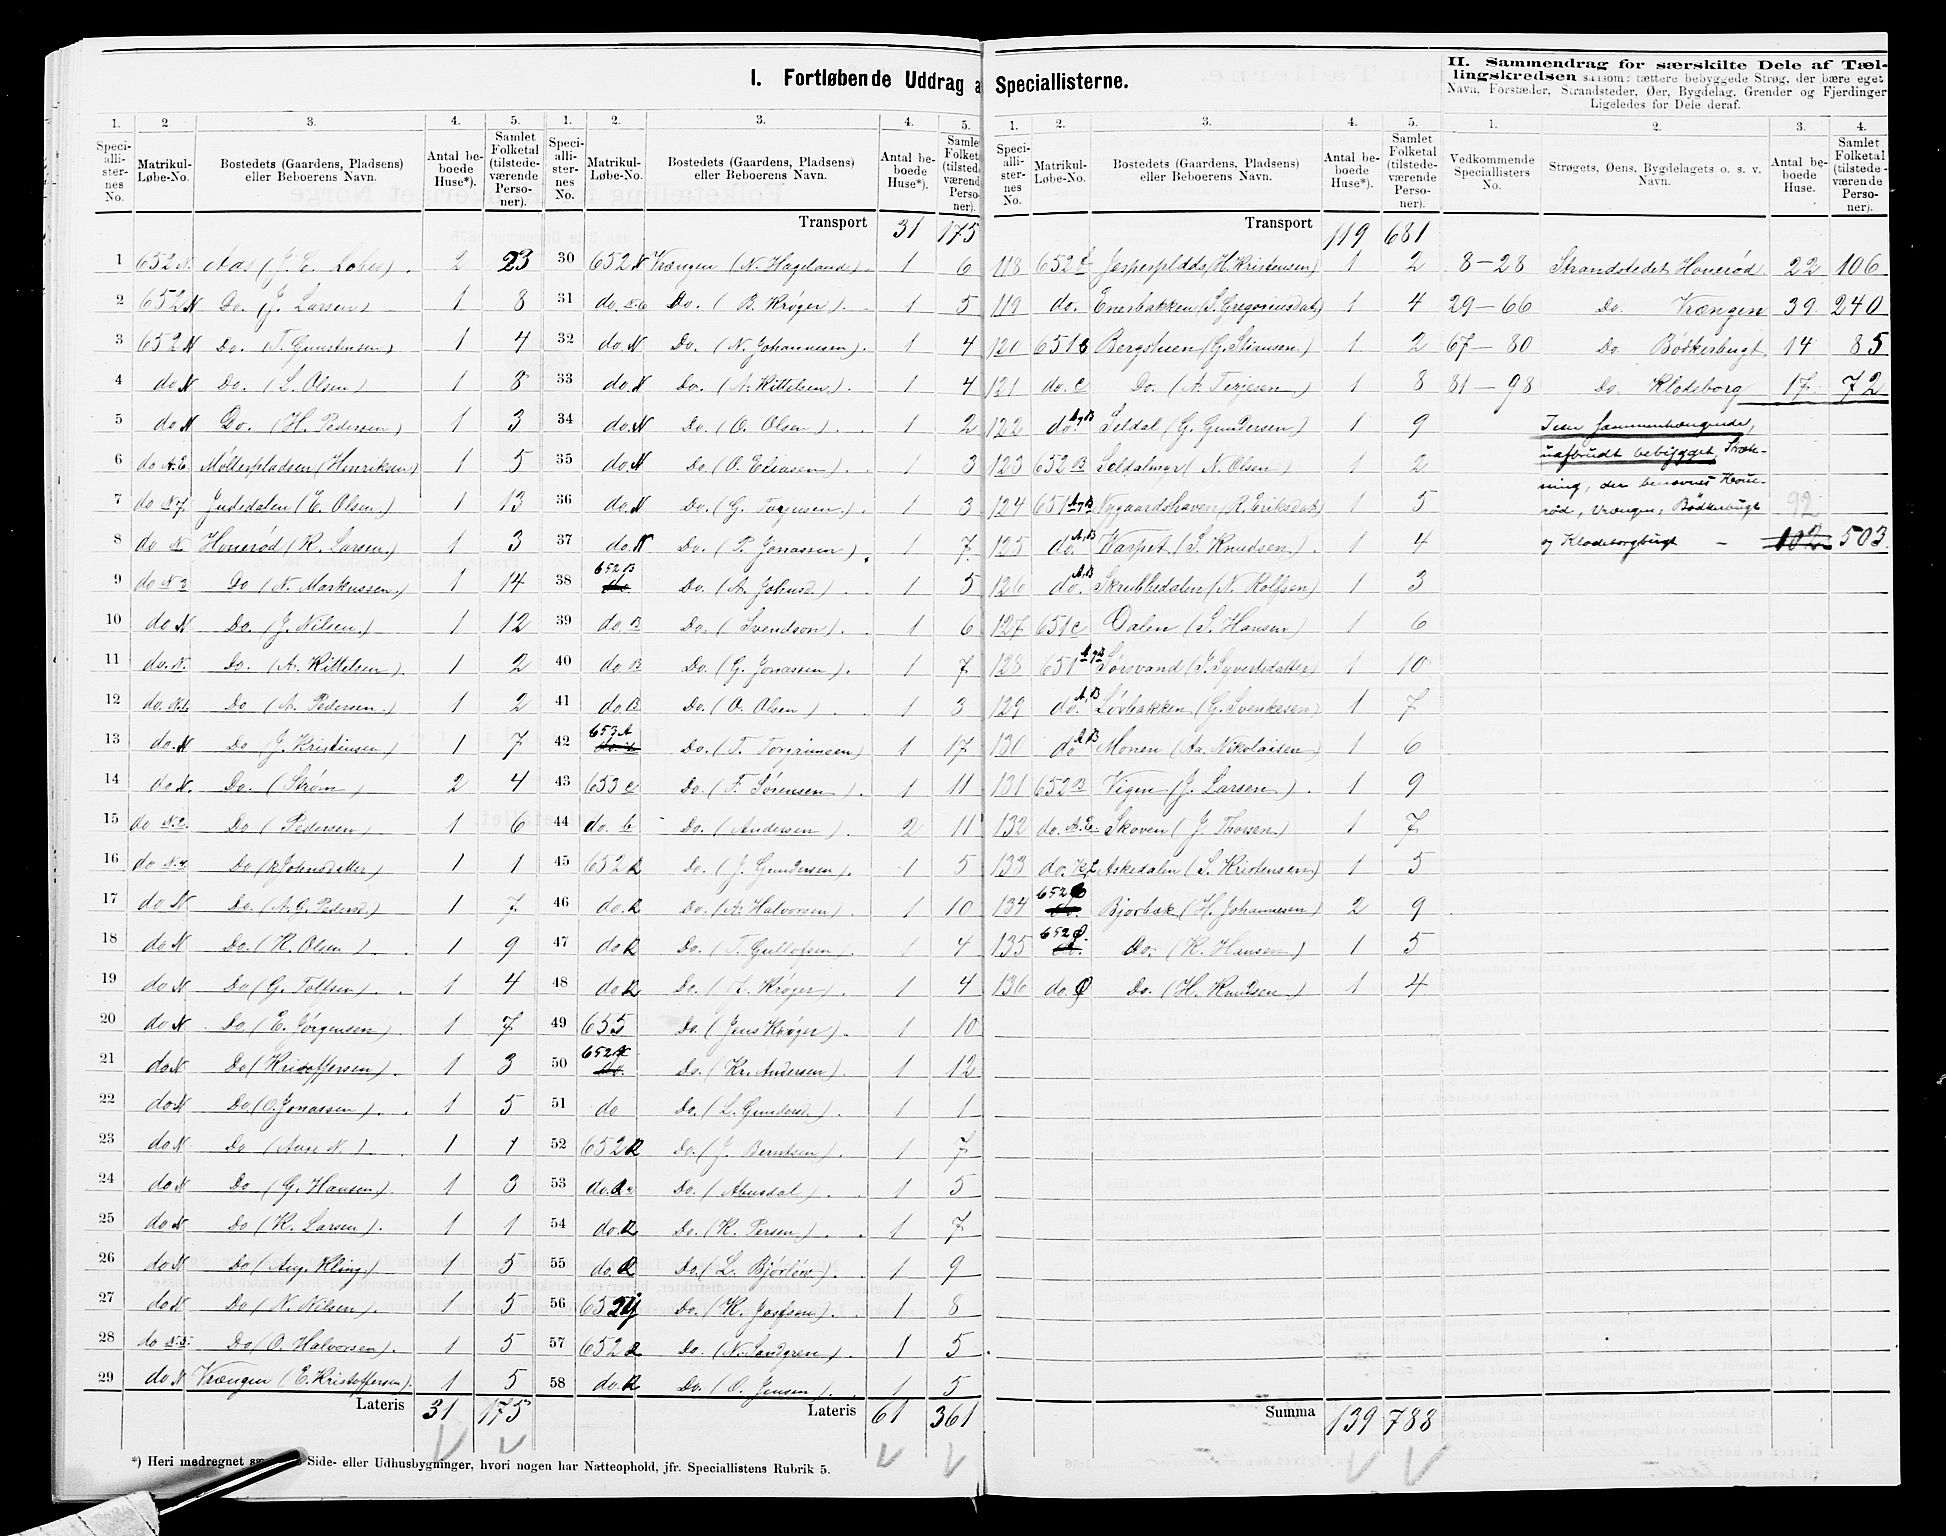 I. Fortløbende Uddrag a
1. 2 3. 4. 5. 1. 2. 3. 4. 5.
Speciallisternes No. Matrikul-Løbe-No. Bostedets (Gaardens, Pladsens) eller Beboerens Navn. Antal beboede Huse*). Samlet Folketal (tilstedeværende Personer). Speciallisternes No. Matrikul-Løbe-No. Bostedets (Gaardens, Pladsens) eller Beboerens Navn. Antal beboede Huse*). Samlet Folketal (tilstedeværende Personer).
Transport 31 175
1 652 N. Aas (J. E. ) 2 23 30 652 N Vrængen (N. Hageland) 1 6
2 652 N Do. (J. Larsen) 1 8 31 do. Do. (B. Krøger). 1 5
3 652 N Do. (T. Gunstensen) 1 4 32 do N Do. (N. Johannesen). 1 4
4 do N Do. (L. Olsen) 1 8 33 do. N Do. (A. Kittelsen). 1 4
5 do N Do. (H. Pedersen) 1 3 34 do. N Do. (O. Olsen). 1 2
6 do A.E. Møllerpladsen (Henriksen) 1 5 35 do. N Do. (O. Eliasen). 1 3
7 do N7 Judedalen (E. Olsen) 1 13 36 do. N Do. (G. Torjusen). 1 3
8 do N Honerød (K. Larsen.) 1 3 37 do. N Do. (P. Jonassen) 7
9 do N3 Do (N. Markussen.) 1 14 38 652 B do Do. (A. Johnsd.) 1 5
10 do N Do. (J. Nilsen.) 1 12 39 do. B Do. (Svendson). 1 6
11 do. N. Do. (A. Kittelsen) 1 2 40 do. B Do. (G. Jonassen) 1 7
12 do. N.1. Do (A. Pedersen.) 1 2 41 do. B Do. (O. Olsen) 1 3
13 do. N Do J. Kristensen) 1 7 42 653 A Do. (T. Torgrimsen) 1 17
14 do N. Do. (Strøm) 2 4 43 653 c Do. (F. Sørensen). 1 11
15 do N.2. Do (Pedersen) 1 6 44 do. b Do. (Andersen) 2 11
16 do N.4. Do (R. Johnsdatter) 1 1 45 652 R Do. (J. Gundersen). 1 5
17 do N Do. (A. O. Pedersd.) 1 7 46 do. R Do. (A. Halvorsen) 1 10
18 do N Do. (K. Olsen). 1 9 47 do R Do. (T. Gullofsen) 1 4
19 do N Do (G. Tollesen). 1 4 48 do R Do. (L. Krøger). 1 4
20 do N Do (E. Jørgensen) 1 7 49 655 Do. (Jens Krøger). 1 10
21 do N Do (Kristoffersen). 1 3 50 652 N do. Do. (Kr. Andersen) 1 12
22 do N Do. (O. Jonassen). 1 5 51 do Do. (L. Gundersd.) 1 1
23 do N Do (Aase N.). 1 1 52 652 R Do. (J. Berntsen). 1 7
24 do N Do (G. Hansen) 1 3 53 do. R Do. (Abusdal). 1 5
25 do N Do (K. Larsen). 1 1 54 do. R Do. (K. Persen). 1 7
26 do N Do (Aug. Kling.) 1 5 55 do. R Do. (L. Bjorløw). 1 9
27 do N Do (N. Nilsen). 1 5 56 652 Y Do. (K. Josefsen). 1 8
28 do N.5. Do (O. Halvorsen). 1 5 57 652 R Do. (N. Sandgren) 1 5
29 do N Vrængen (E. Kristoffersen). 1 5 58 do. R Do. (O. Jensen). 1 5
Lateris 31 175 Lateris 61 361
*) Heri medregnet Side- eller Udhusbygninger, hvori nogen har Natteophold, jfr. Speciallistens Rubrik 5.
Speciallisterne.
II. Sammendrag for særskilte Dele af Tællingskredsen saasom: tættere bebyggede Strøg, der bære eget Navn, Forstæder, Strandsteder, Øer, Bygdelag, Grender og Fjerdinger Ligeledes for Dele deraf.
1. 2. 3. 4. 5. 1. 2. 3. 4.
Speciallisternes No. Matrikul-Løbe-No. Bostedets (Gaardens, Pladsens) eller Beboerens Navn. Antal beboede Huse*). Samlet Folketal (tilstedeværende Personer). Vedkommende Speciallisters No. Strøgets, Øens, Bygdelagets o. s. v. Navn. Antal beboede Huse. Samlet Folketal (tilstedeværende Personer).
Transport 119 681
118 652 Jesperplads (H. Kristensen) 1 2 8-28 Strandstedet Honerød 22 106
119 do. Enerbakken (S. Gregoriusdat) 1 4 29-66 Do. Vrængen 39 240
120 651 c Bergstuen (G. Stiansen.) 1 2 67-80 Do Bödkerbugt 14 85
121 do. c Do. (A. Terjesen) 1 8 81-98 Do. Klodeborg 17 72
122 do. A,B Seldal (G. Gundersen) 1 9 sammenhængende,
123 652 B Seldalmyr (N. Olsen) 1 2 uafbrudt bebygget Stræk-
124 651 A,B Nygaardshaven (R. Eriksdat) 1 5 ning, der benævnes Hone- 92
125 do. A,B Varpet (S. Knudsen) 1 4 rød, Vrængen, Bödkerbugt
126 do. A,B Skrubbedalen (N. Rolfsen) 1 3 og Klodeborgbugt – 102 503.
127 651 c Dalen (S. Hansen) 1 6
128 651 A,B Sørsvand (J. Syvertsdatter) 1 10
129 do. A,B Løvbakken (G. Svenkesen) 1 7
130 do A,B Monen (Aa. Nikolaisen) 1 6
131 652 B Vigen (J. Larsen). 1 9
132 do. A.E Skoven (J. Thorsen.) 1 7
133 do. Askedalen (S. Kristensen) 1 5
134 652 Ø do. Bjorbæk (H. Johannesen) 2 9
135 652 Ø. do. Do. (K. Hansen) 1 5
136 do. Ø Do. (H. Knudsen) 1 4
Summa 139 788